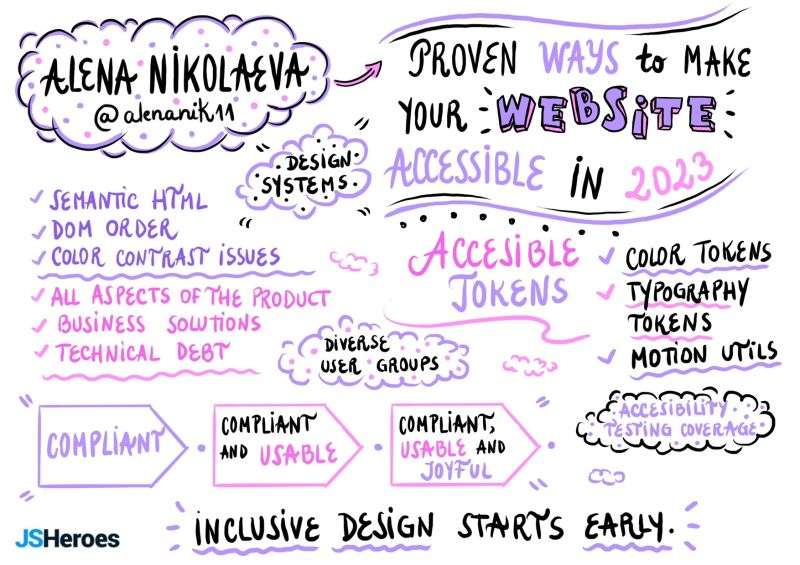 ALENA NIKOLAEVA
@alenanik11
PROVEN WAYS to MAKE
YOUR WEBSITE
ACCESSIBLE IN 2023
DESIGN
SYSTEMS
SEMANTIC HTML
DOM ORDER
COLOR CONTRAST ISSUES
ALL ASPECTS OF THE PRODUCT
BUSINESS SOLUTIONS
TECHNICAL DEBT
ACCESIBLE
TOKENS
COLOR TOKENS
TYPOGRAPHY
TOKENS
MOTION UTILS
DIVERSE
USER GROUPS
COMPLIANT
COMPLIANT
AND USABLE
COMPLIANT,
USABLE AND
JOYFUL
ACCESIBILITY
TESTING COVERAGE
INCLUSIVE DESIGN STARTS EARLY.
JSHeroes